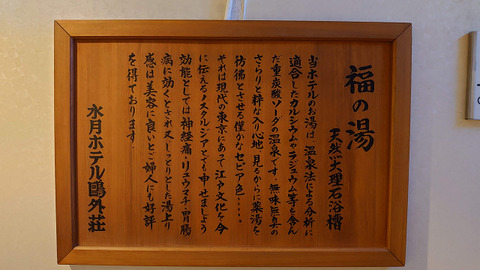 福の湯
天然大理石浴槽
当ホテルのお湯は、温泉法による分析に
適合したカルシュウムやラジュウム等を含ん
だ重炭酸ソーダの温泉です。無味無臭の
さらりと粋な入り心地、見るからに薬湯を
彷彿とさせる僅かなセピア色‥‥‥
それは現代の東京にあって江戸文化を今
に伝えるノスタルジアとでも申せましょう
効能としては神経痛・リュウマチ・胃腸
病に効くとされ又しっとりとした湯上り
感は美容に良いとご婦人にも好評
を得ております。
水月ホテル鷗外荘